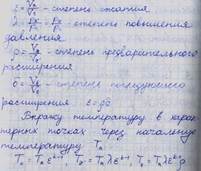 ε = Vа/Vс - степень сжатия
λ = Pz/Pc = - степень повышения
давления
ρ = - степень предварительного
расширения
δ = - степень последующего
расширения ε = ρδ
Выражу температуру в харак-
терных точках через начальную
температуру Tа
Tс = Tа ε^(k-1), = Tа λ ε^(k-1), = Tа λ ε^(k-1) ρ